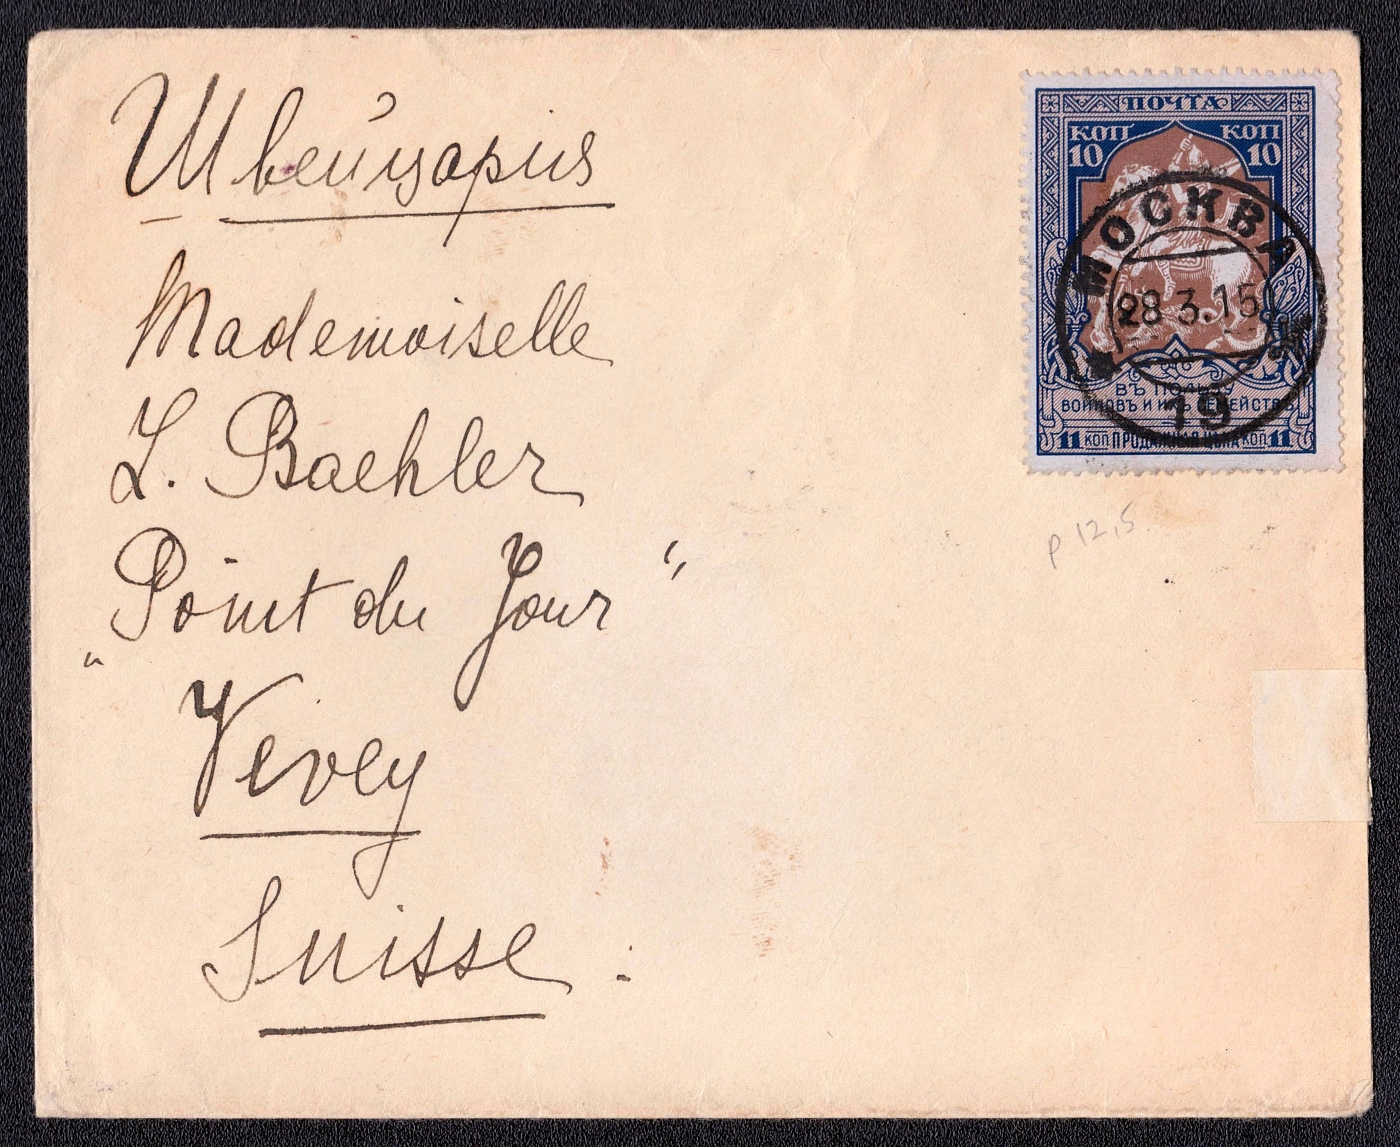 Швейцарія
Mademoiselle
L. Baehler
„Point du Jour“
Vevey
Suisse.
ПОЧТА
КОП 10 КОП 10
МОСКВА
28 3.15
19
ВЪ ПОЛЬЗУ
ВОИНОВЪ И ИХЪ СЕМЕЙСТВЪ
11 КОП ПРОДАЖНАЯ ЦѢНА КОП 11
p 12,5